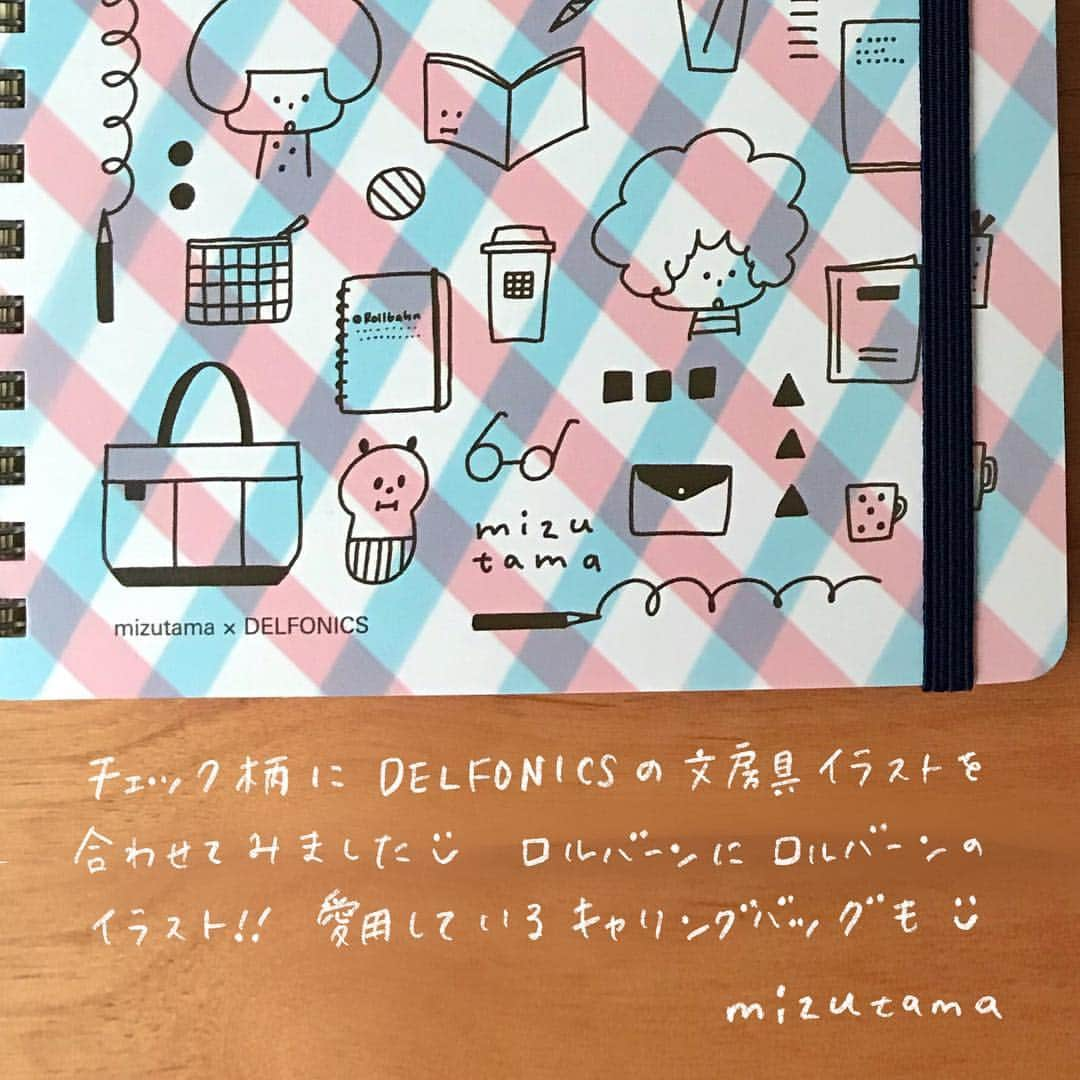 Rollbahn
mizu
tama
mizutama × DELFONICS
チェック柄に DELFONICSの文房具イラストを
合わせてみました ロルバーンにロルバーンの
イラスト!! 愛用しているキャリングバッグも
mizutama